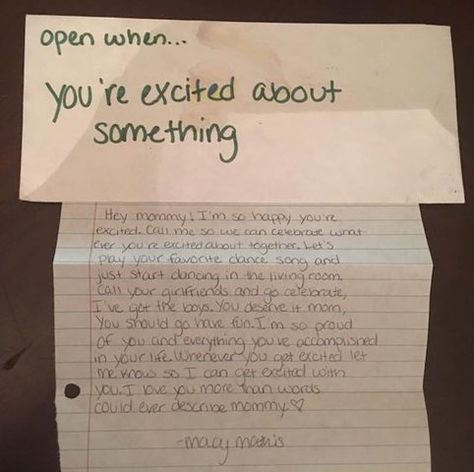 open when...
you're excited about
something
Hey mommy! I'm so happy you're
excited. Call me so we can celebrate what
ever you're excited about together. Let's
play your favorite dance song and
just start dancing in the living room.
Call your girlfriends and go celebrate,
I've got the boys. You deserve it mom,
You should go have fun. I'm so proud
of you and everything you've accomplished
in your life. Whenever you get excited let
me know so I can get excited with
you. I love you more than words
could ever describe mommy ♡
-macy mathis